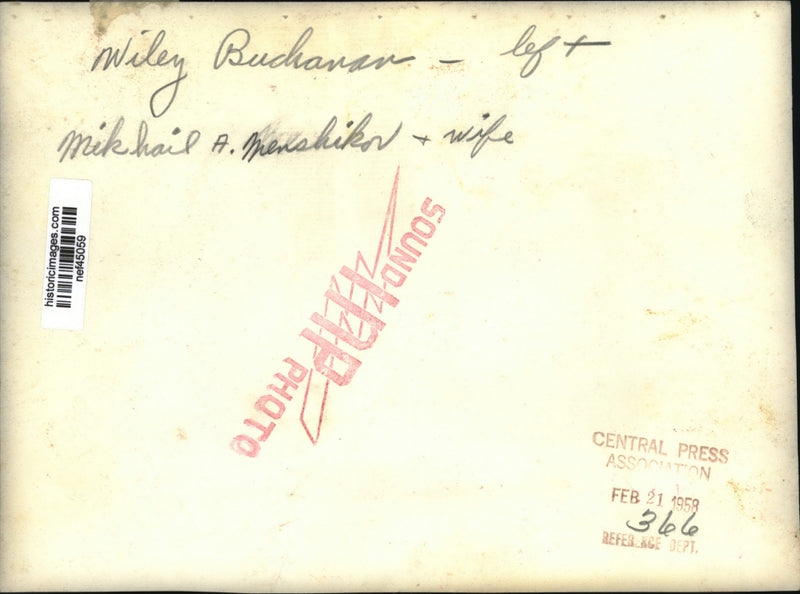 Wiley Buchanan - left
Mikhail A. Menshikov + wife
historicimages.com
nef45059
SOUND
PHOTO
CENTRAL PRESS
ASSOCIATION
FEB 21 1958
366
REFERENCE DEPT.